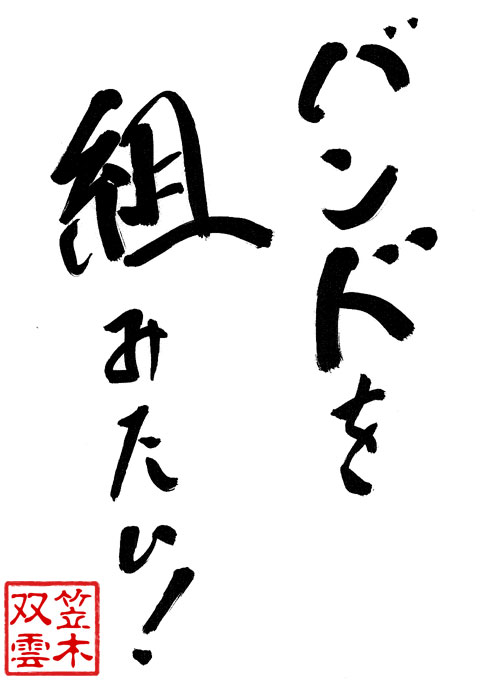 バンドを
組みたい!
笠木
双雲